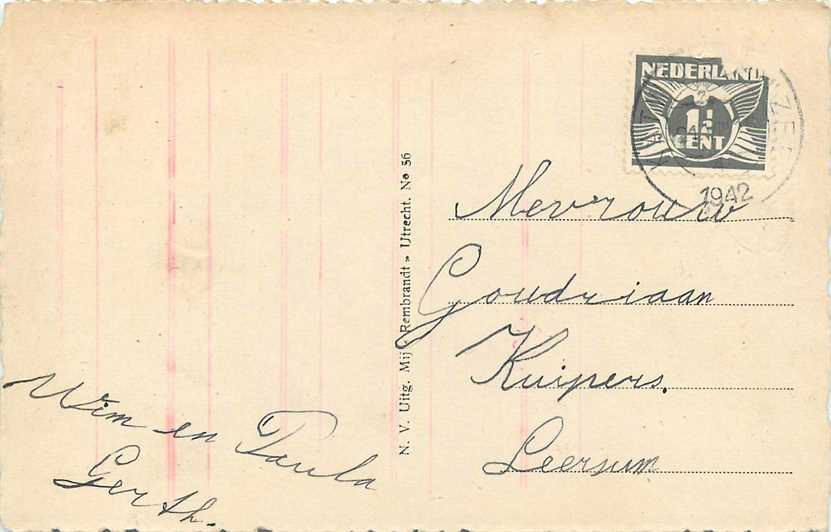 Wim en Paula
Gerth.
N. V. Uitg. Mij. « Rembrandt » Utrecht. No 36
NEDERLAND
1½
CENT
1942
Mevrouw
Goudriaan
Kuipers.
Leersum